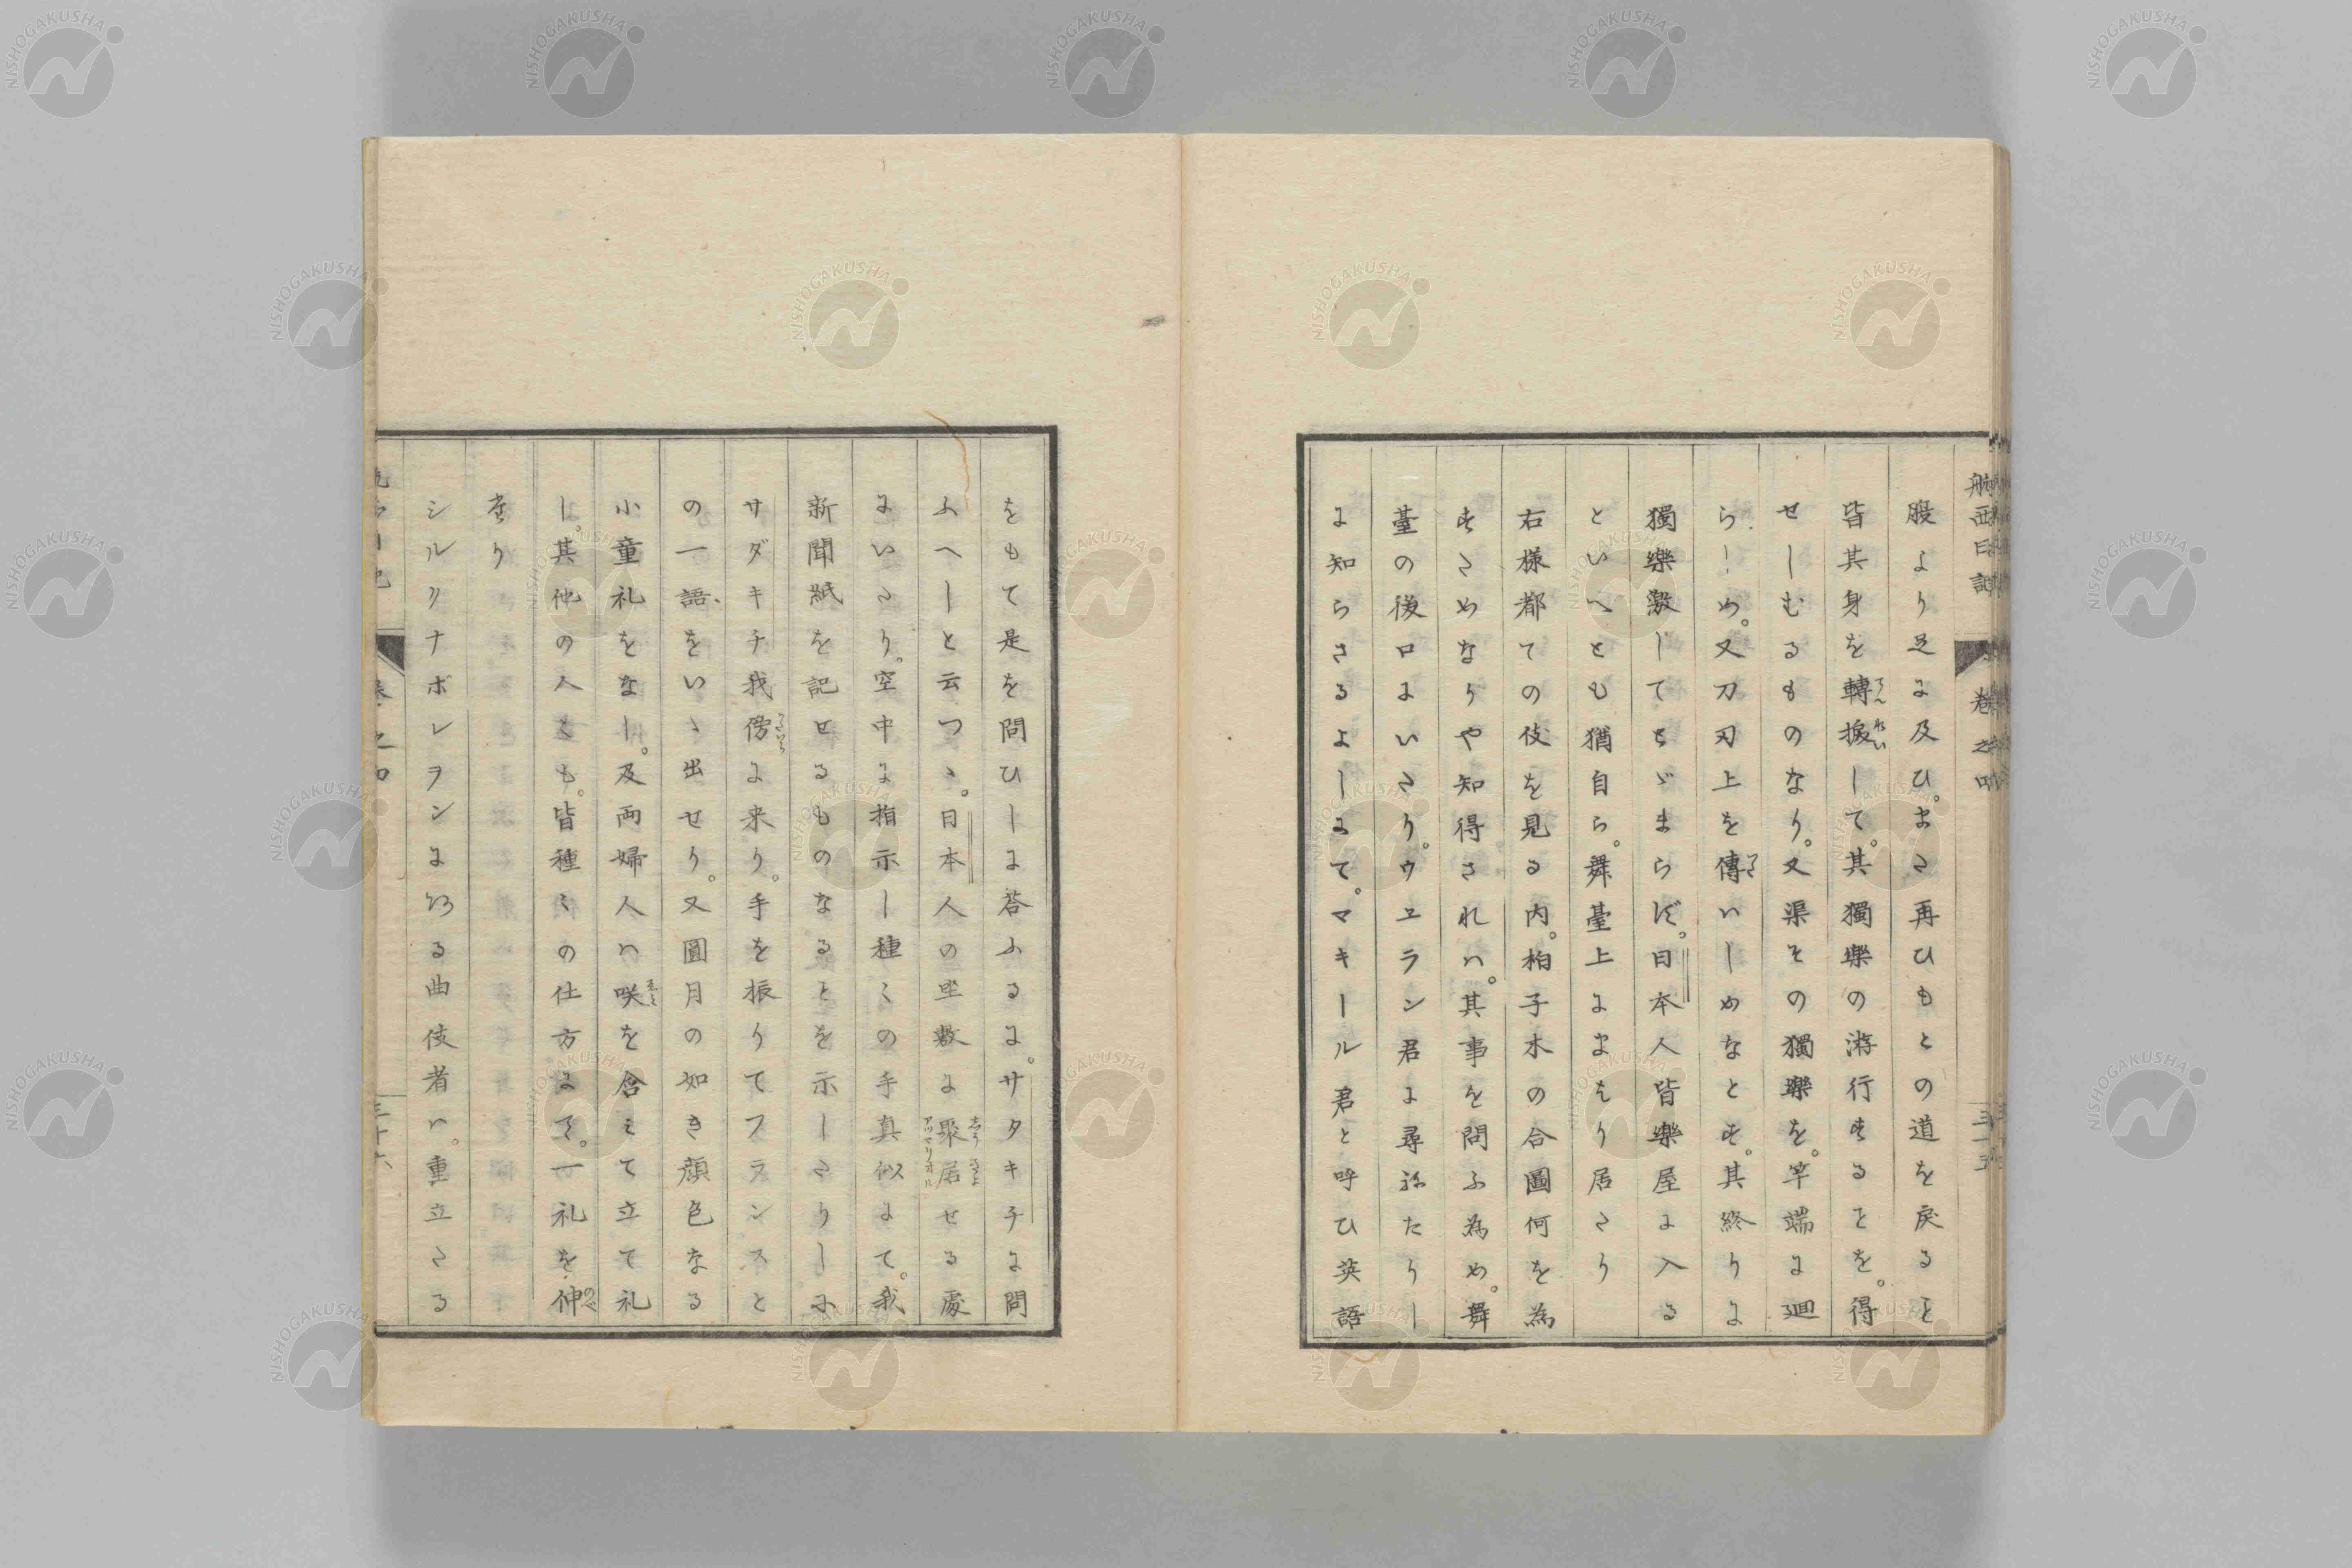 航西日記
卷之四
股より足に及ひ。また再ひもとの道を戻ると
皆其身を轉捩して。其獨樂の游行するヿを。得
せしむるものなり。又渠その獨樂を。竿端に廻
らしめ。又刀刃上を傳いしめなとす。其終りに
獨樂激してちゞまらば。日本人皆樂屋に入る
といへとも猶自ら。舞臺上にまはり居たり
右様都ての伎を見る内。柏子木の合圖何を為
すためなりや知得されハ。其事を問ふ為め。舞
臺の後口にいたり。ウエラン君に尋ねたりし
に知らさるよしにて。マキール君と呼ひ英語
をもて是を問ひしに荅ふるに。サタキチに問
ふへしと云つゝ。日本人の坐敷に聚居せる處
にいたり。空中に指示し種〱の手真似にて。我
新聞紙を記せるものなるヿを示したりしに
サダキチ我傍に来り。手を振りてフランスと
の一語、をいゝ出せり。又圓月の如き顔色なる
小童礼をなし。及両婦人ハ咲を含ミて立て礼
し。其他の人〻も。皆種〻の仕方にて。一礼を伸
をり
シルクナポレヲンに於る曲伎者ハ。重立たる